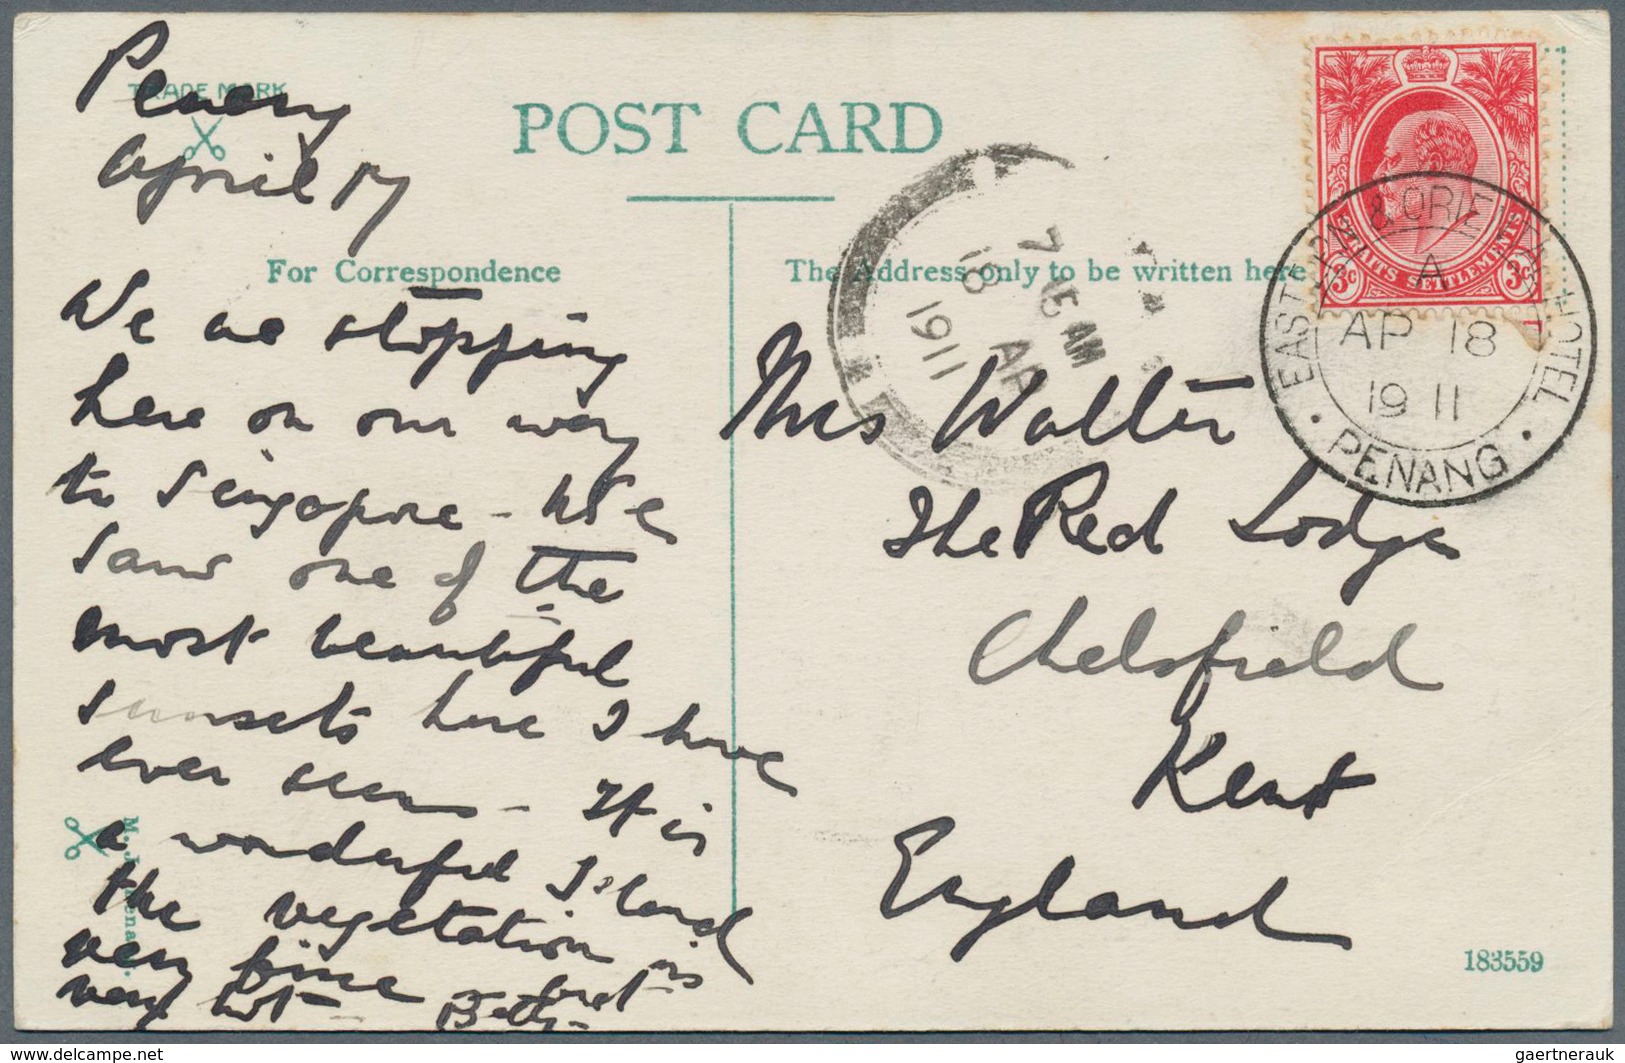 Penang
April 17
TRADE MARK
POST CARD
For Correspondence
The Address only to be written here
We are stopping
here on our way
to Singapore - We
saw one of the
most beautiful
sunsets here I have
ever seen - It is
a wonderful Island
the vegetation is
very fine - but
very hot - Betty -
Mrs Walter
The Red Lodge
Chelsfield
Kent
England
STRAITS SETTLEMENTS
3c 3c
EASTERN & ORIENTAL HOTEL
A
AP 18
1911
· PENANG ·
7 15 AM
18 AP
1911
M. J. Penang.
183559
delcampe.net
gaertnerauk